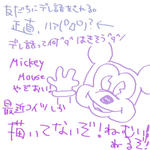 友だちにデレ話をされる。
正直、ハァ(゜Д゜)?←
デレ話って何"ダ"はきそう"ダ"
Mickey
Mouse
やどおい!
最近コイツしか
描いてないぞ!ねむい!
わるぞ!